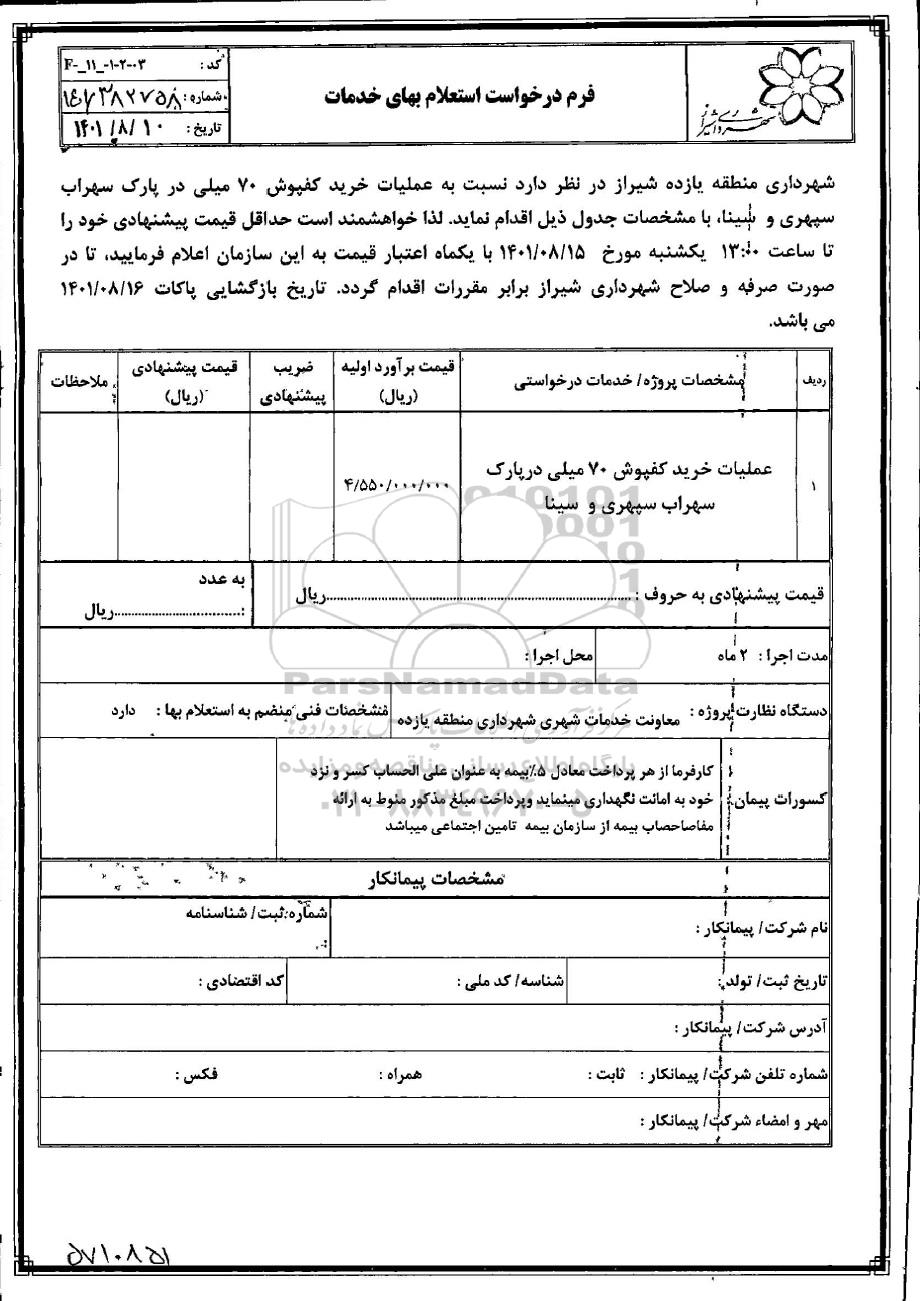 کد: F-_۱۱_-۱-۲-۰۳
شماره: ۱۴۷۳۸۲۷۵۸
تاریخ: ۱۴۰۱/۸/۱۰
فرم درخواست استعلام بهای خدمات
شهرداری شیراز
شهرداری منطقه یازده شیراز در نظر دارد نسبت به عملیات خرید کفپوش ۷۰ میلی در پارک سهراب
سپهری و سینا، با مشخصات جدول ذیل اقدام نماید. لذا خواهشمند است حداقل قیمت پیشنهادی خود را
تا ساعت ۱۳:۰۰ یکشنبه مورخ ۱۴۰۱/۰۸/۱۵ با یکماه اعتبار قیمت به این سازمان اعلام فرمایید، تا در
صورت صرفه و صلاح شهرداری شیراز برابر مقررات اقدام گردد. تاریخ بازگشایی پاکات ۱۴۰۱/۰۸/۱۶
می باشد.
ردیف
مشخصات پروژه/ خدمات درخواستی
قیمت برآورد اولیه
(ریال)
ضریب
پیشنهادی
قیمت پیشنهادی
(ریال)
ملاحظات
۱
عملیات خرید کفپوش ۷۰ میلی درپارک
سهراب سپهری و سینا
۴/۵۵۰/۰۰۰/۰۰۰
قیمت پیشنهادی به حروف : ..........ریال
به عدد
:..........ریال
مدت اجرا : ۲ ماه
محل اجرا :
ParsNamadData
دستگاه نظارت پروژه : معاونت خدمات شهری شهرداری منطقه یازده
مشخصات فنی منضم به استعلام بها : دارد
پایگاه اطلاع رسانی مناقصه و مزایده
کسورات پیمان:
کارفرما از هر پرداخت معادل ۵٪بیمه به عنوان علی الحساب کسر و نزد
خود به امانت نگهداری مینماید وپرداخت مبلغ مذکور منوط به ارائه
مفاصاحصاب بیمه از سازمان بیمه تامین اجتماعی میباشد
۰۲۱-۸۸۳۴۹۶۷۰-۵
مشخصات پیمانکار
نام شرکت/ پیمانکار :
شماره ثبت/ شناسنامه
تاریخ ثبت/ تولد:
شناسه/ کد ملی :
کد اقتصادی :
آدرس شرکت/ پیمانکار :
شماره تلفن شرکت/ پیمانکار : ثابت :
همراه :
فکس :
مهر و امضاء شرکت/ پیمانکار :
۵۷۱۰۸۵۱